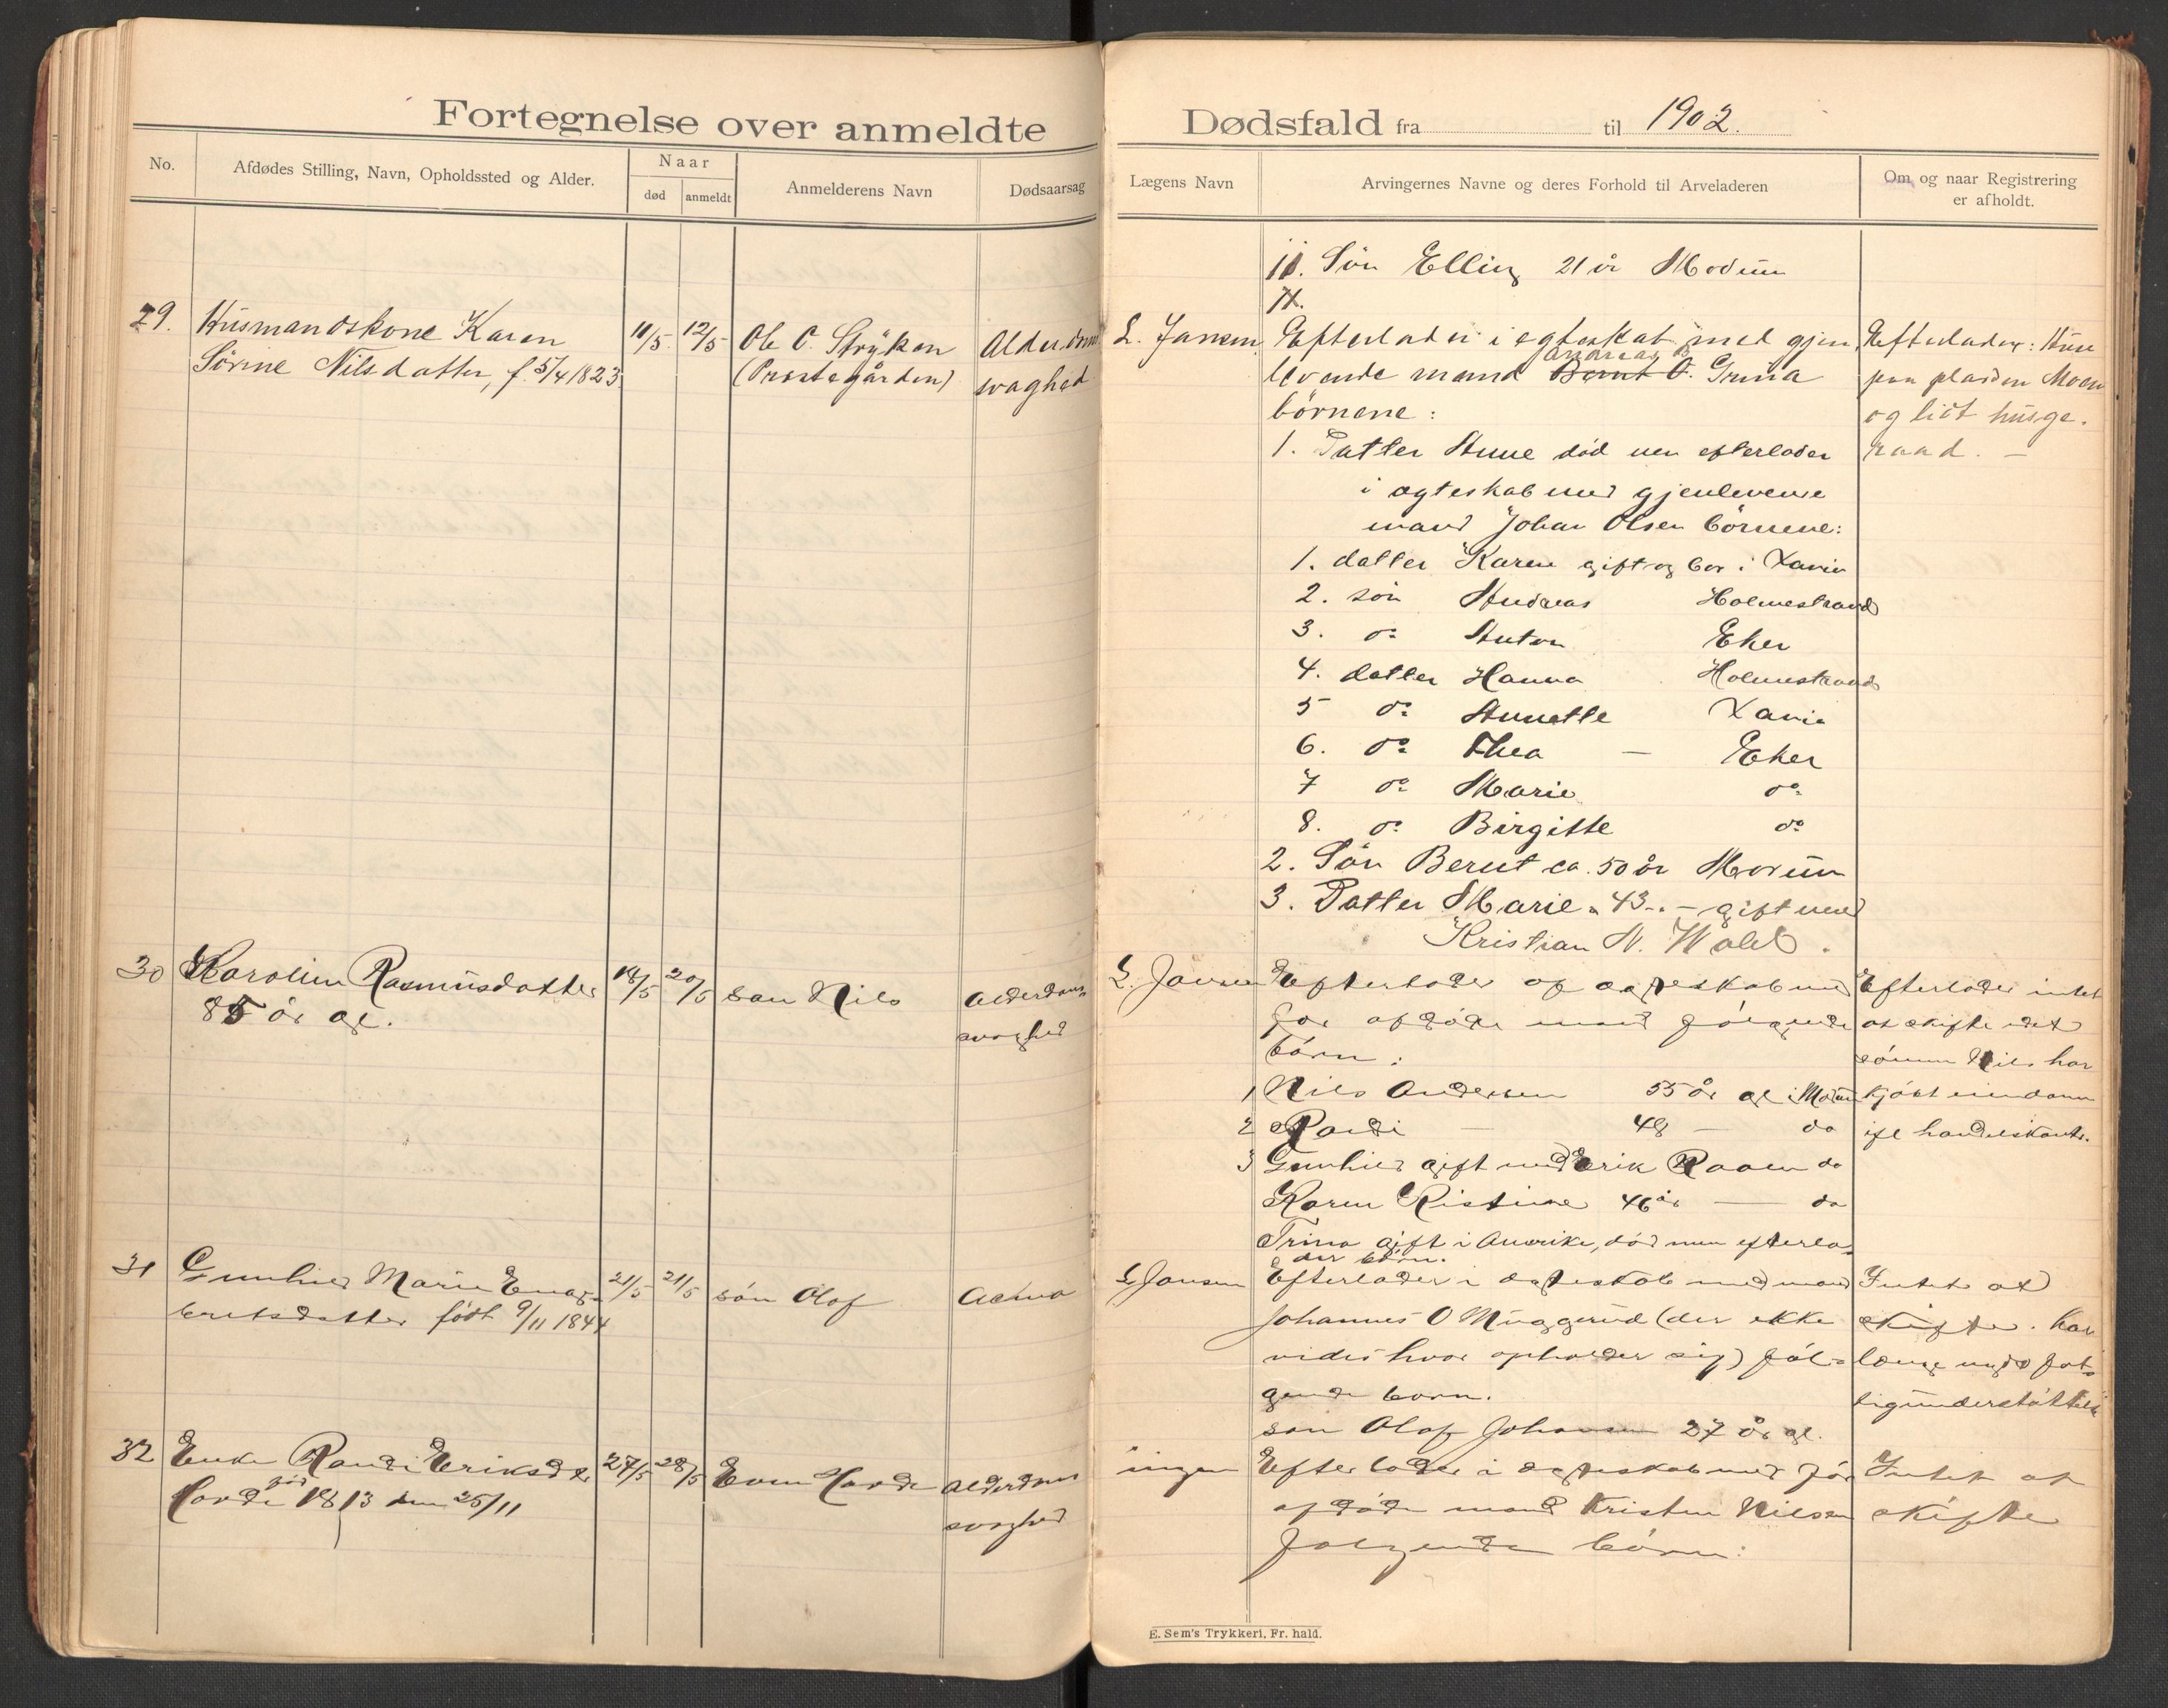 Fortegnelse over anmeldte Dødsfald fra til 1902.
No. Afdødes Stilling, Navn, Opholdssted og Alder. Naar død anmeldt Anmelderens Navn Dødsaarsag
Lægens Navn Arvingernes Navne og deres Forhold til Arveladeren Om og naar Registrering er afholdt.
11. Søn Elling 21 år Modum
29. Husmandskone Karen 11/5. 12/5 Ole C. Stryken
Sørine Nilsdatter, f. 5/4 1823 (Præstegården) svaghed
L. Jansen Efterlader i egteskab med gjen
levende mand Andreas Bernt O. Gruna
børnene:
1. Datter Anne død men efterlader
i ægteskab med gjenlevende
mand Johan Olsen børnene:
1. datter Karen gift og bor i Xania
2. søn Andreas Holmestrand
3. do Anton Eker
4. datter Hanna Holmestrand
5 do Annette Xania
6. do Thea — Eker
7 do Marie do
8. do Birgitte do
2. Søn Bernt ca. 50 år Modum
3. Datter Marie " 43 - " - gift med
Kristian N.
Efterlader: Huse
paa pladsen Moen
og lidt husge-
raad. —
30 Karolin Rasmusdatter 18/5 20/5 søn Nils Alderdoms
85 år gl. svaghed
L. Jansen Efterlader af ægteskab med
før afdøde mand følgende
børn:
1 Nils Andersen 55 år gl i Modum
2 Randi — 48 — do
3 Gunhild gift med Erik Raaen do
Karen Kistine 46 år — do
Trina gift i Amerika, død men efterla-
der børn.
Efterlader intet
at skifte idet
sønnen Nils har
kjøbt eiendom
ifl handelskont.
31 Gunhild Marie Enge- 21/5 21/5 søn Olaf Astma
bretsdatter født 9/11 1844
L Jansen Efterlader i ægteskab med mand
Johannes O Muggerud (der ikke
vides hvor opholder sig) føl-
gende børn.
søn Olaf Johansen 27 år gl.
Intet at
skifte. har
længe nydt fat-
tigunderstøttelse
32 Enke Randi Eriksdtr 27/5 28/5 Even Alderdoms
født 1813 den 25/11 svaghed
ingen Efterlader i ægteskab med før
afdøde mand Kristen Nilsen
følgende børn:
Intet at
skifte
E. Sem's Trykkeri, Fr. hald.